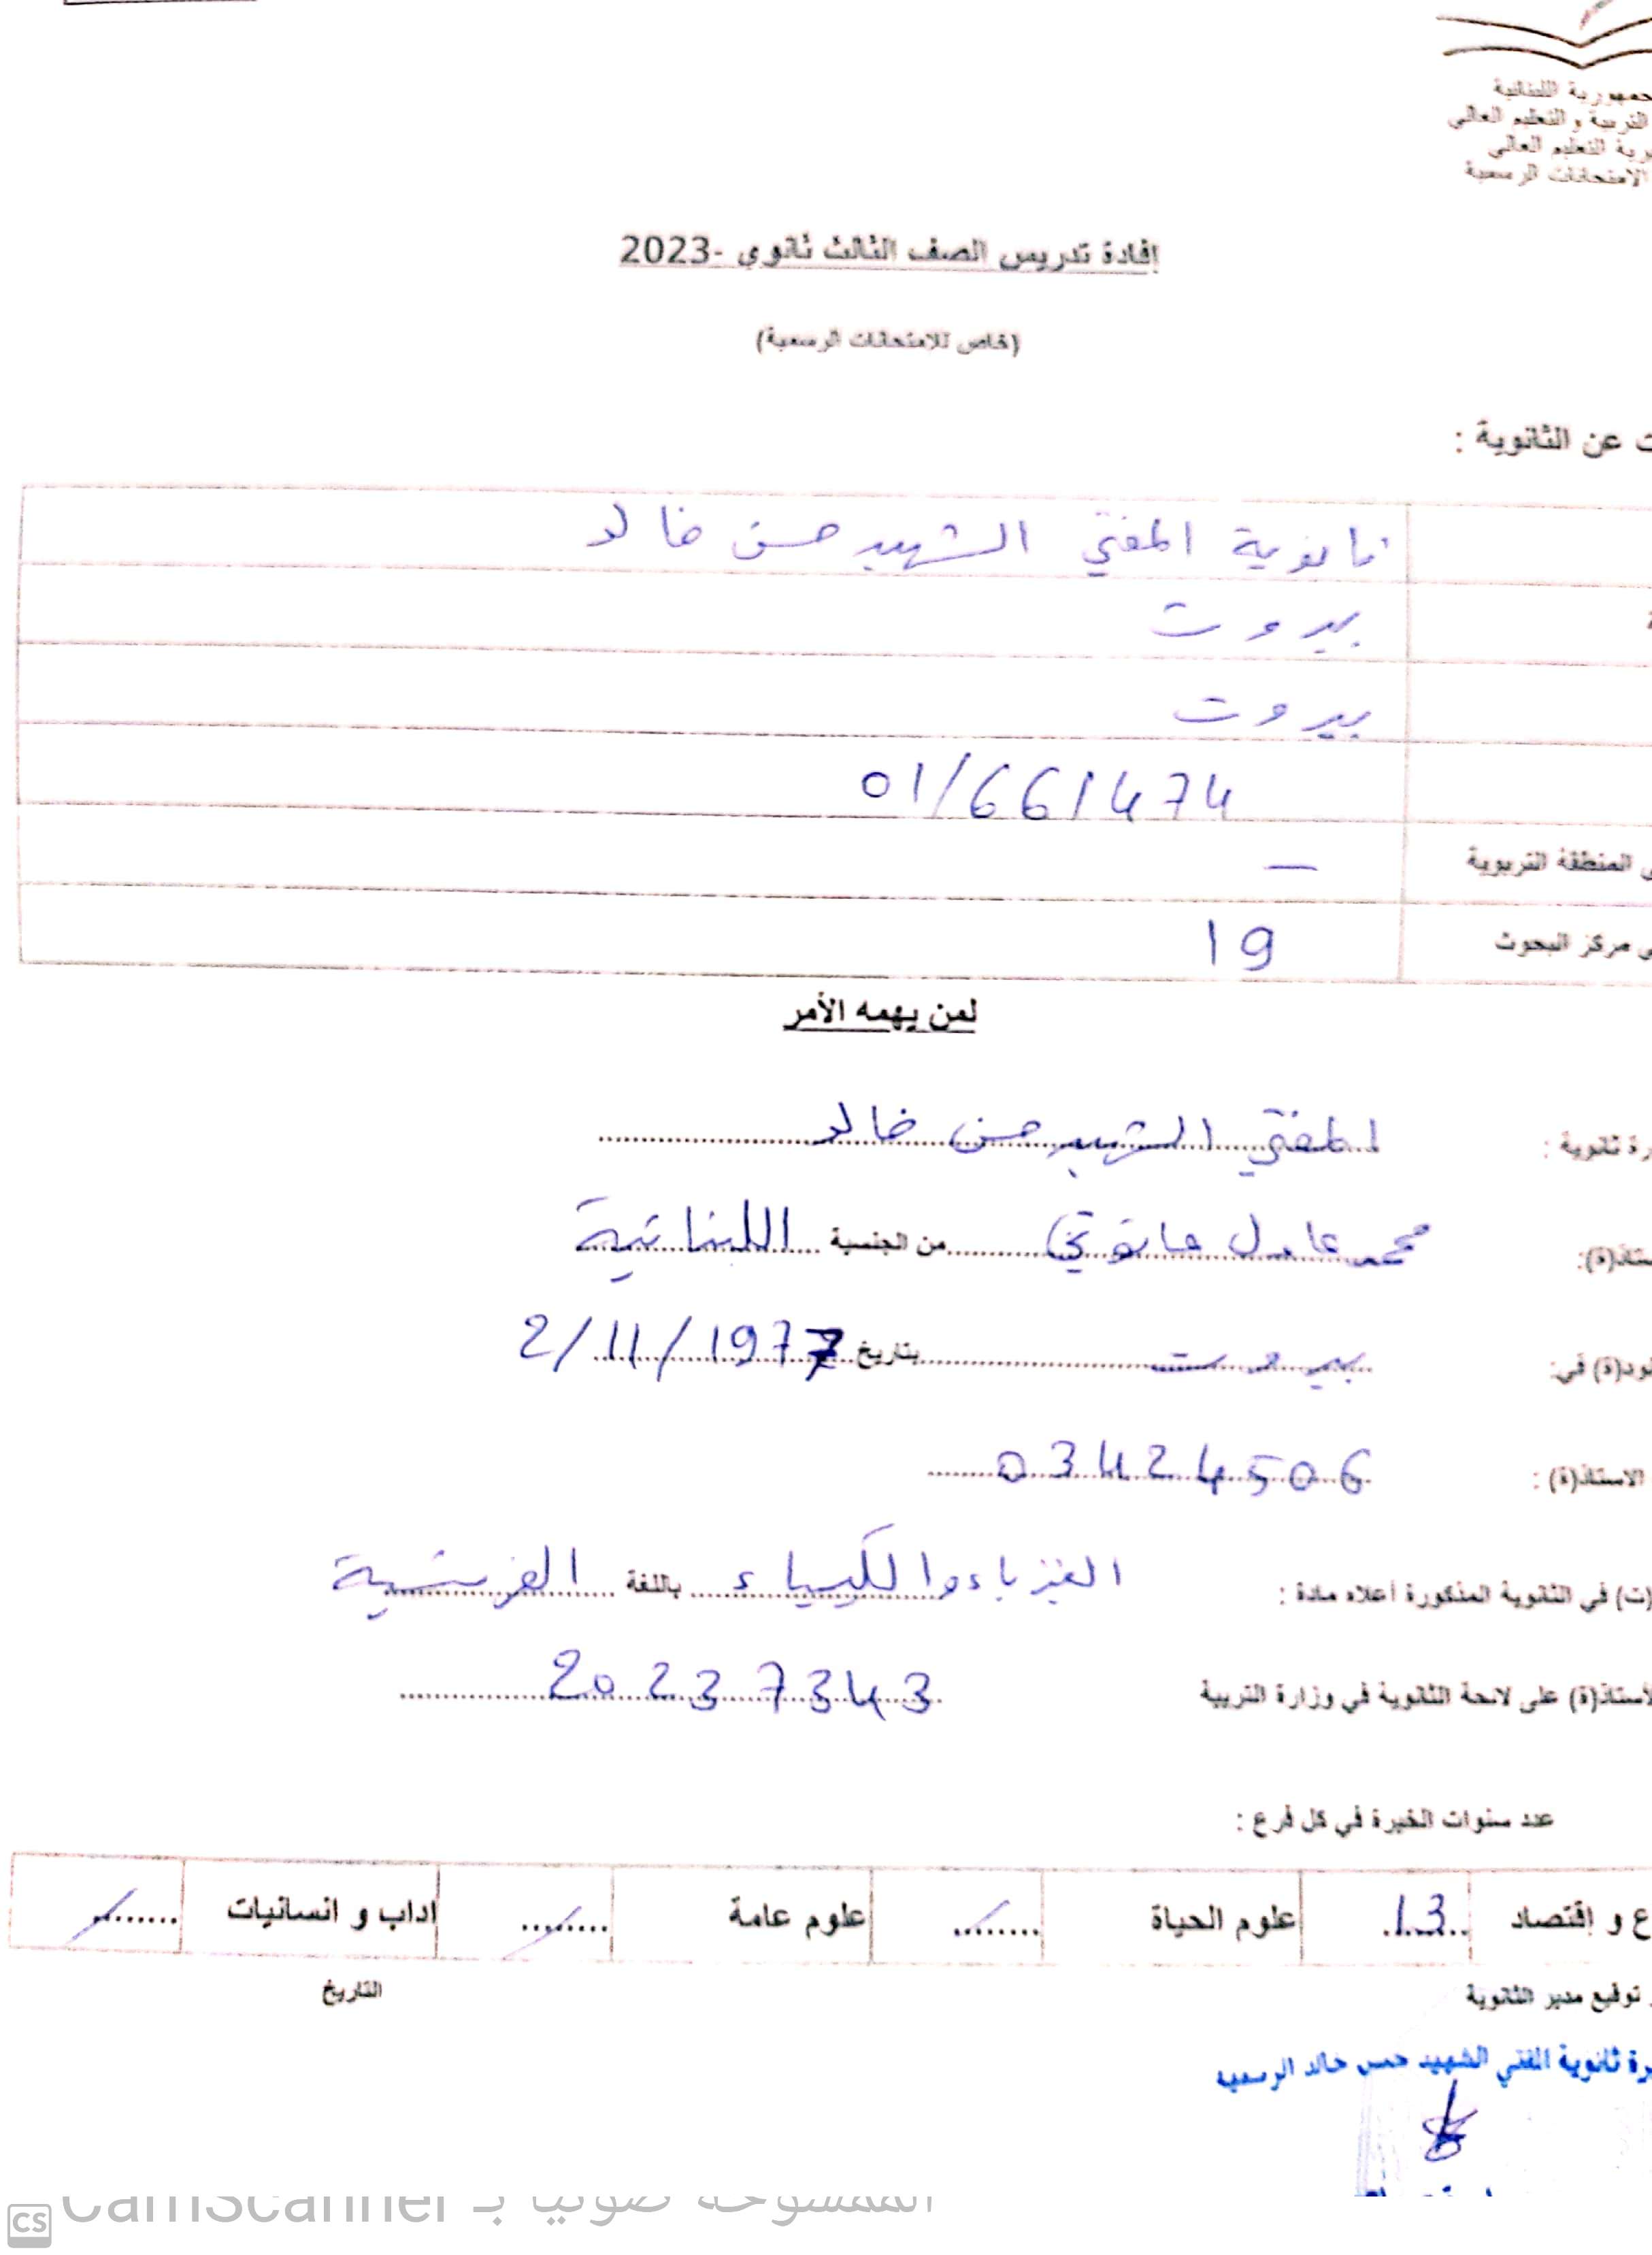 جمهورية اللبنانية
التربية و التعليم العالي
التعليم العالي
الامتحانات الرسمية
إفادة تدريس الصف الثالث ثانوي -2023
(خاص للامتحانات الرسمية)
عن الثانوية :
ثانوية المفتي الشهيد حسن خالد
بيروت
بيروت
01/661474
المنطقة التربوية —
مركز البحوث 19
لمن يهمه الأمر
ثانوية : المفتي الشهيد حسن خالد
محمد عادل من الجنسية اللبنانية
(ة) في: بيروت بتاريخ 2/11/1977
الاستاذ(ة) : 03424506
(ت) في الثانوية المذكورة أعلاه مادة : الفيزياء والكيمياء باللغة الفرنسية
(ة) على لائحة الثانوية في وزارة التربية 20237343
عدد سنوات الخبرة في كل فرع :
ع و إقتصاد 13 علوم الحياة / علوم عامة / اداب و انسانيات /
توقيع مدير الثانوية التاريخ
رة ثانوية المفتي الشهيد حسن خالد الرسمية
CS الممسوحة ضوئيا بـ CamScanner